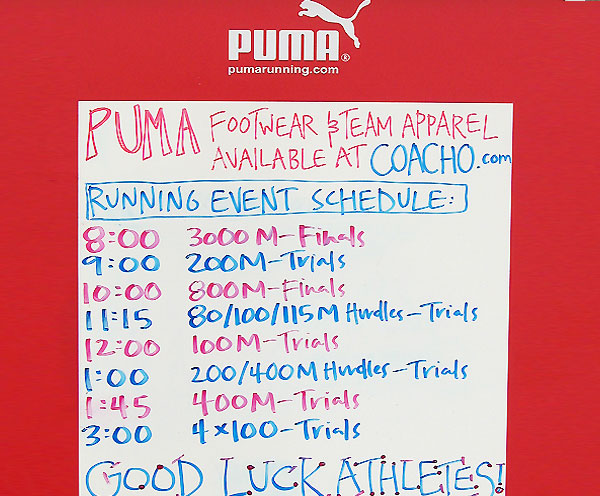 PUMA®
pumarunning.com
PUMA FOOTWEAR & TEAM APPAREL
AVAILABLE AT COACHO.com
RUNNING EVENT SCHEDULE:
8:00 3000 M-Finals
9:00 200M-Trials
10:00 800M-Finals
11:15 80/100/115M Hurdles-Trials
12:00 100M-Trials
1:00 200/400M Hurdles-Trials
1:45 400M-Trials
3:00 4x100-Trials
GOOD LUCK ATHLETES!